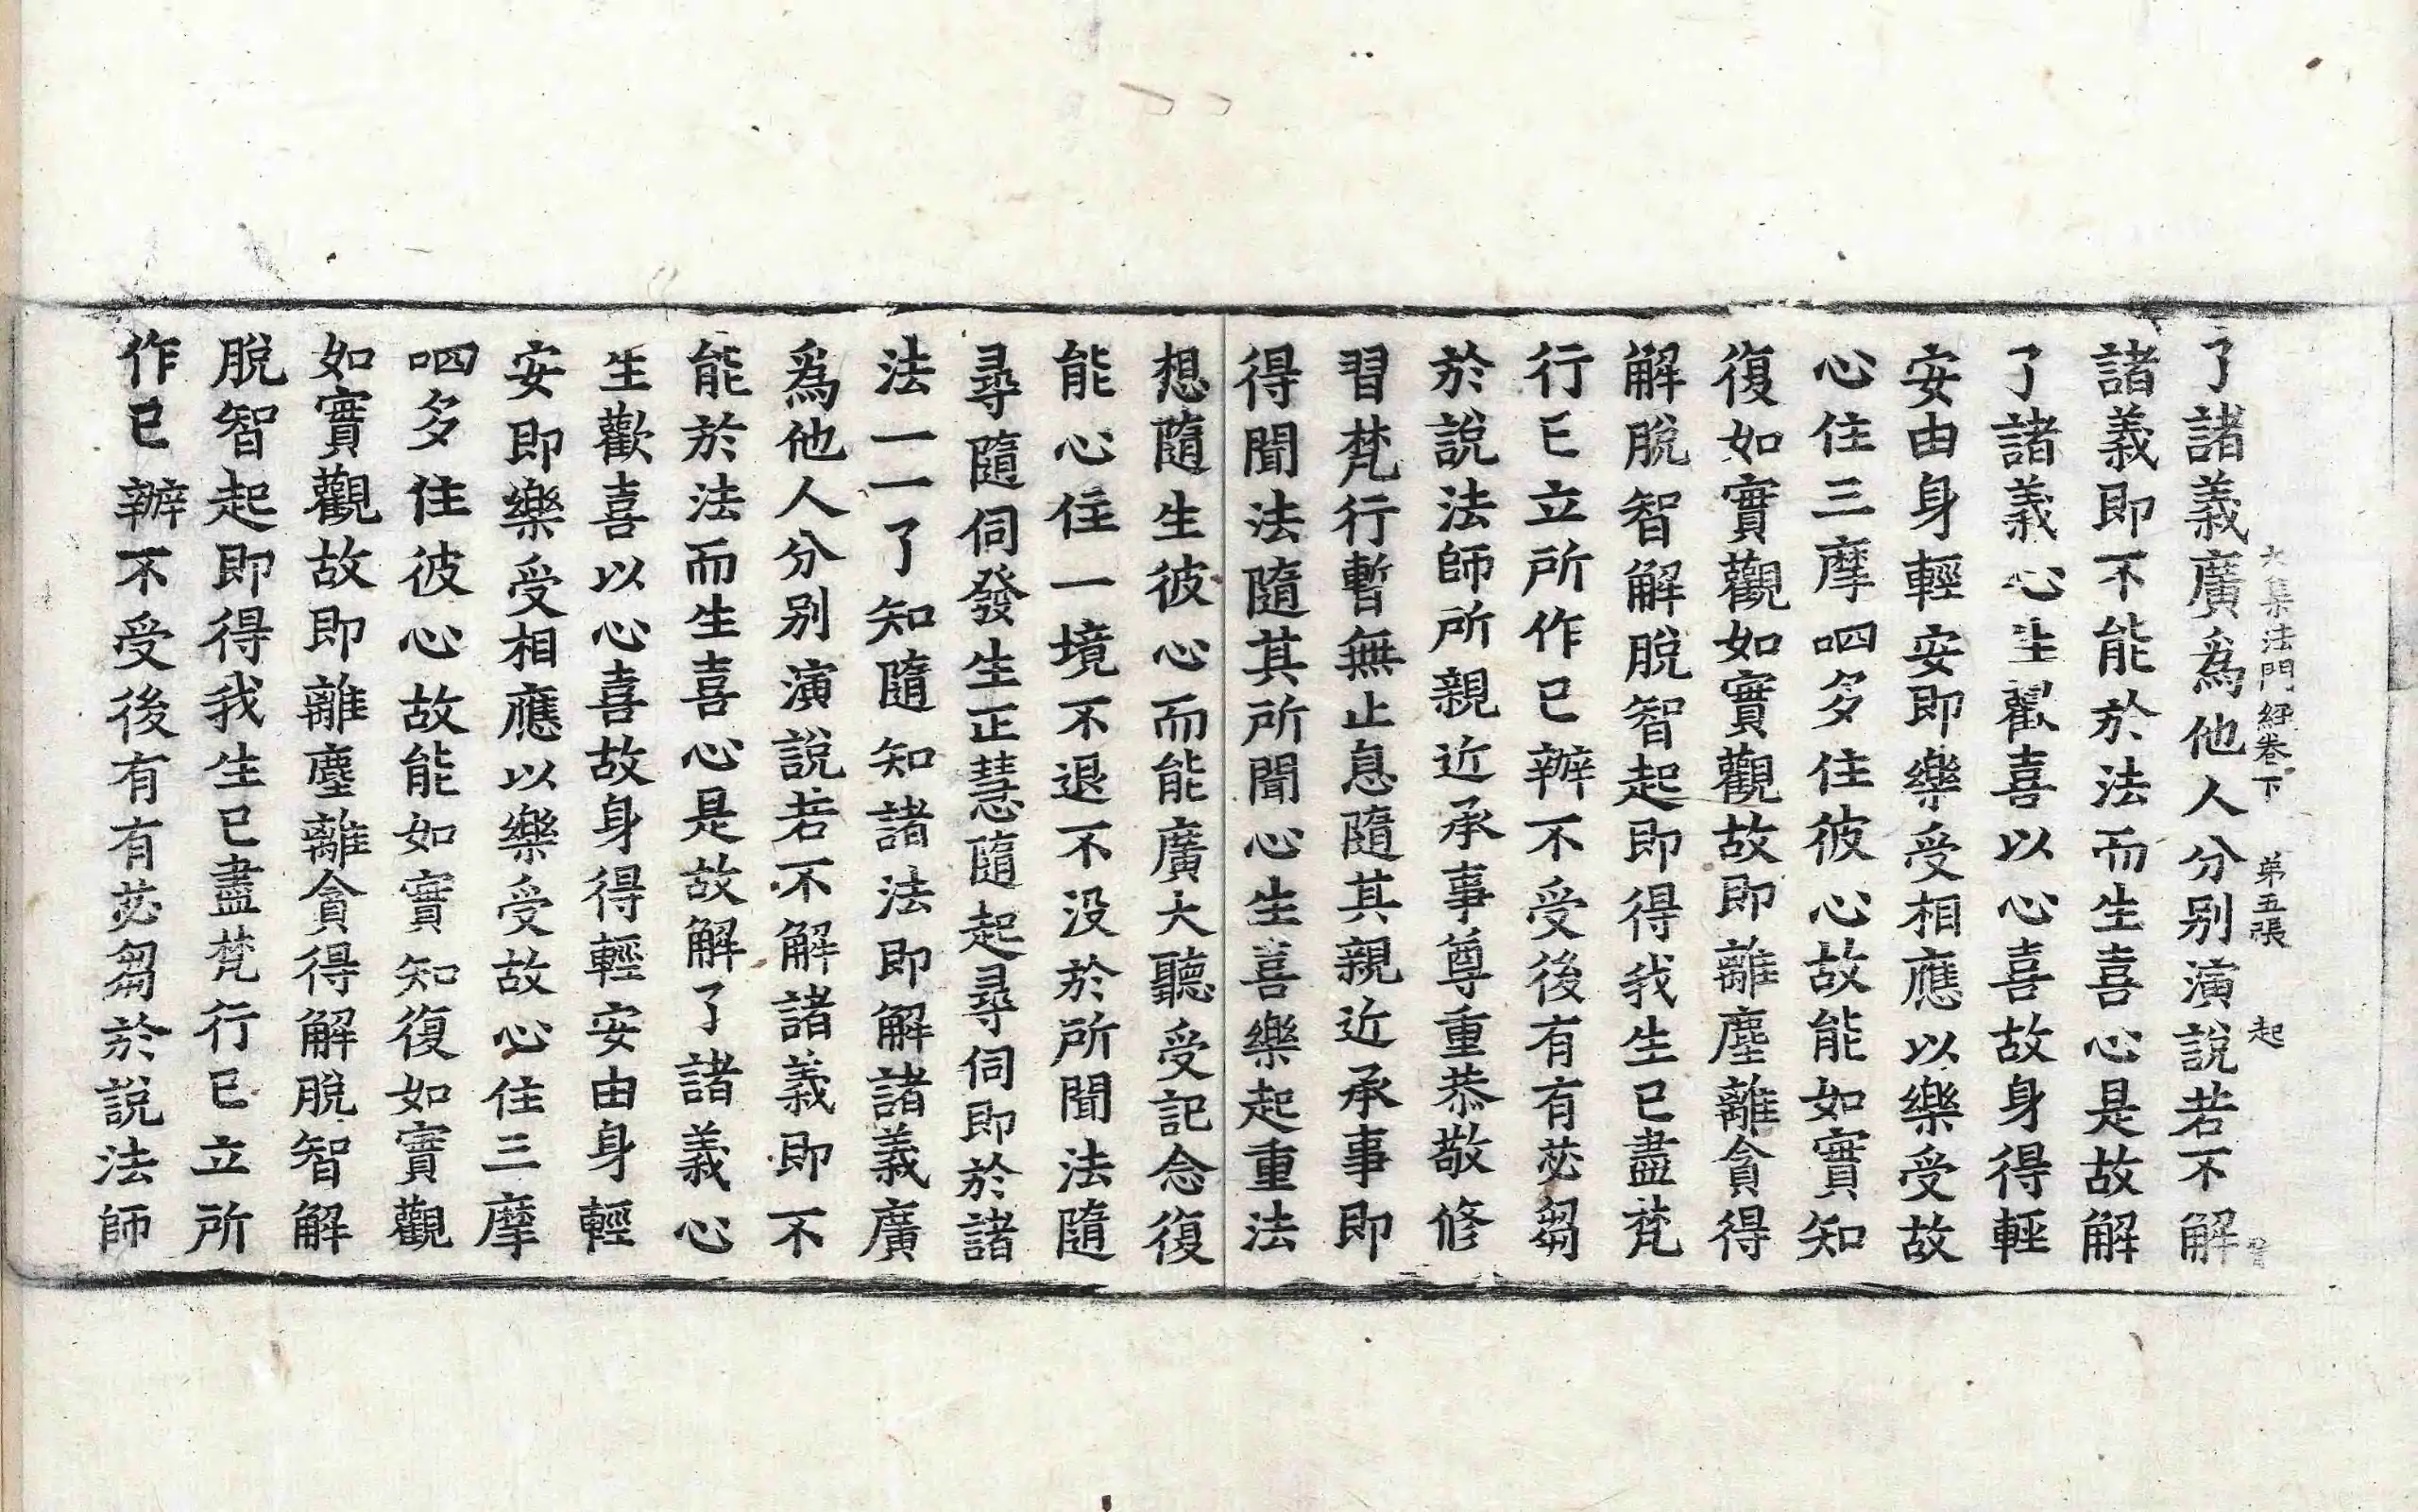 大集法門經卷下 弟五張 起
了諸義廣爲他人分别演說若不解
諸義即不能於法而生喜心是故解
了諸義心生歡喜以心喜故身得輕
安由身輕安即樂受相應以樂受故
心住三摩呬多住彼心故能如實知
復如實觀如實觀故即離塵離貪得
解脫智解脫智起即得我生已盡梵
行已立所作已辦不受後有有苾芻
於說法師所親近承事尊重恭敬修
習梵行暫無止息隨其親近承事即
得聞法隨其所聞心生喜樂起重法
想隨生彼心而能廣大聽受記念復
能心住一境不退不没於所聞法隨
尋隨伺發生正慧隨起尋伺即於諸
法一一了知隨知諸法即解諸義廣
爲他人分别演說若不解諸義即不
能於法而生喜心是故解了諸義心
生歡喜以心喜故身得輕安由身輕
安即樂受相應以樂受故心住三摩
呬多住彼心故能如實知復如實觀
如實觀故即離塵離貪得解脫智解
脫智起即得我生已盡梵行已立所
作已辦不受後有有苾芻於說法師